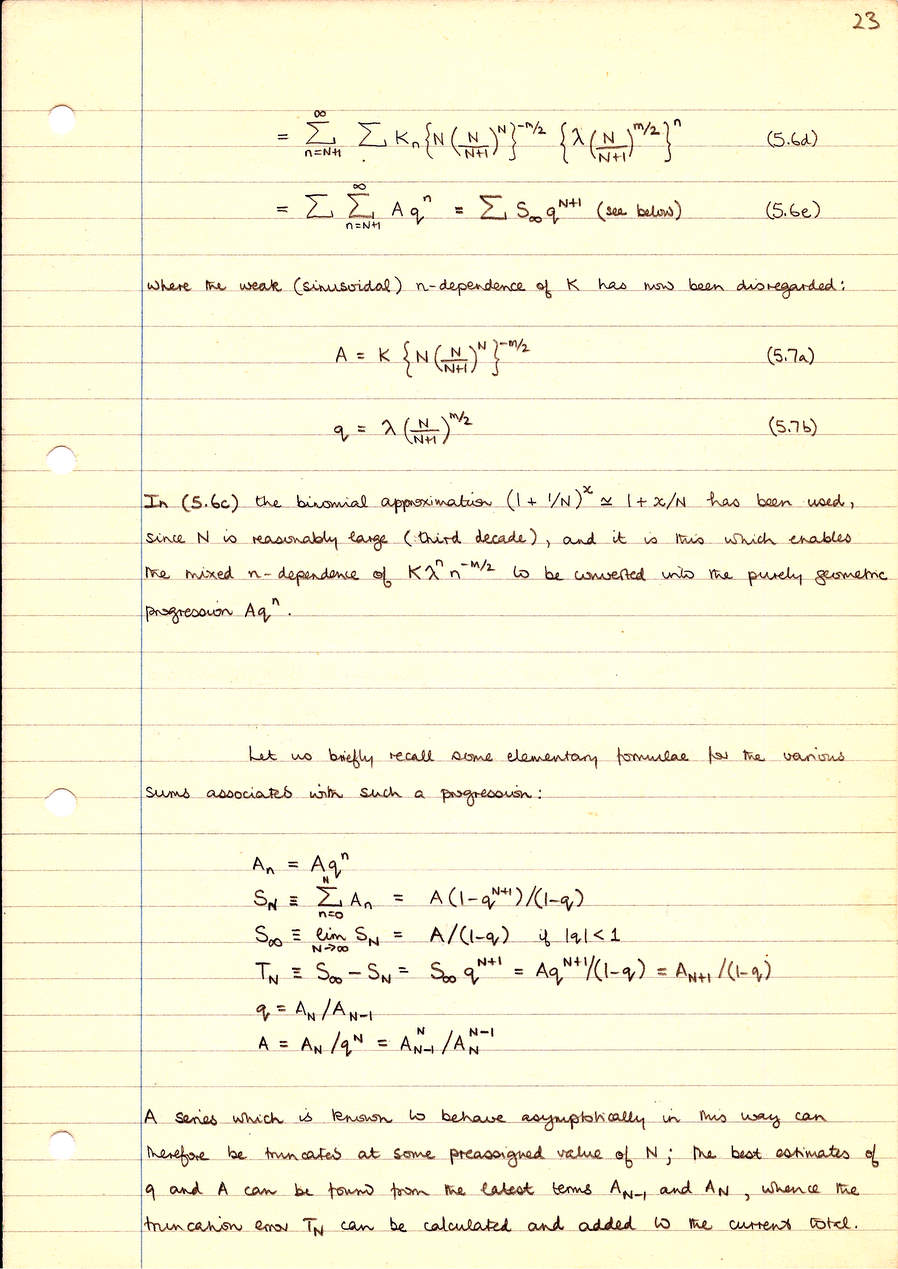 23
= ∑_{n=N+1}^{∞} ∑ K_n {N (N/(N+1))^N}^{-m/2} {λ (N/(N+1))^{m/2}}^n (5.6d)
= ∑ ∑_{n=N+1}^{∞} A q^n = ∑ S_∞ q^{N+1} (see below) (5.6e)
where the weak (sinusoidal) n-dependence of K has now been disregarded:
A = K {N (N/(N+1))^N}^{-m/2} (5.7a)
q = λ (N/(N+1))^{m/2} (5.7b)
In (5.6c) the binomial approximation (1 + 1/N)^x ≃ 1 + x/N has been used,
since N is reasonably large (third decade), and it is this which enables
the mixed n-dependence of Kλ^n n^{-m/2} to be converted into the purely geometric
progression Aq^n.
Let us briefly recall some elementary formulae for the various
sums associated with such a progression:
A_n = Aq^n
S_N ≡ ∑_{n=0}^{N} A_n = A(1-q^{N+1})/(1-q)
S_∞ ≡ lim_{N→∞} S_N = A/(1-q) if |q| < 1
T_N ≡ S_∞ - S_N = S_∞ q^{N+1} = Aq^{N+1}/(1-q) = A_{N+1}/(1-q)
q = A_N/A_{N-1}
A = A_N/q^N = A_{N-1}^N/A_N^{N-1}
A series which is known to behave asymptotically in this way can
therefore be truncated at some preassigned value of N; the best estimates of
q and A can be found from the latest terms A_{N-1} and A_N, whence the
truncation error T_N can be calculated and added to the current total.